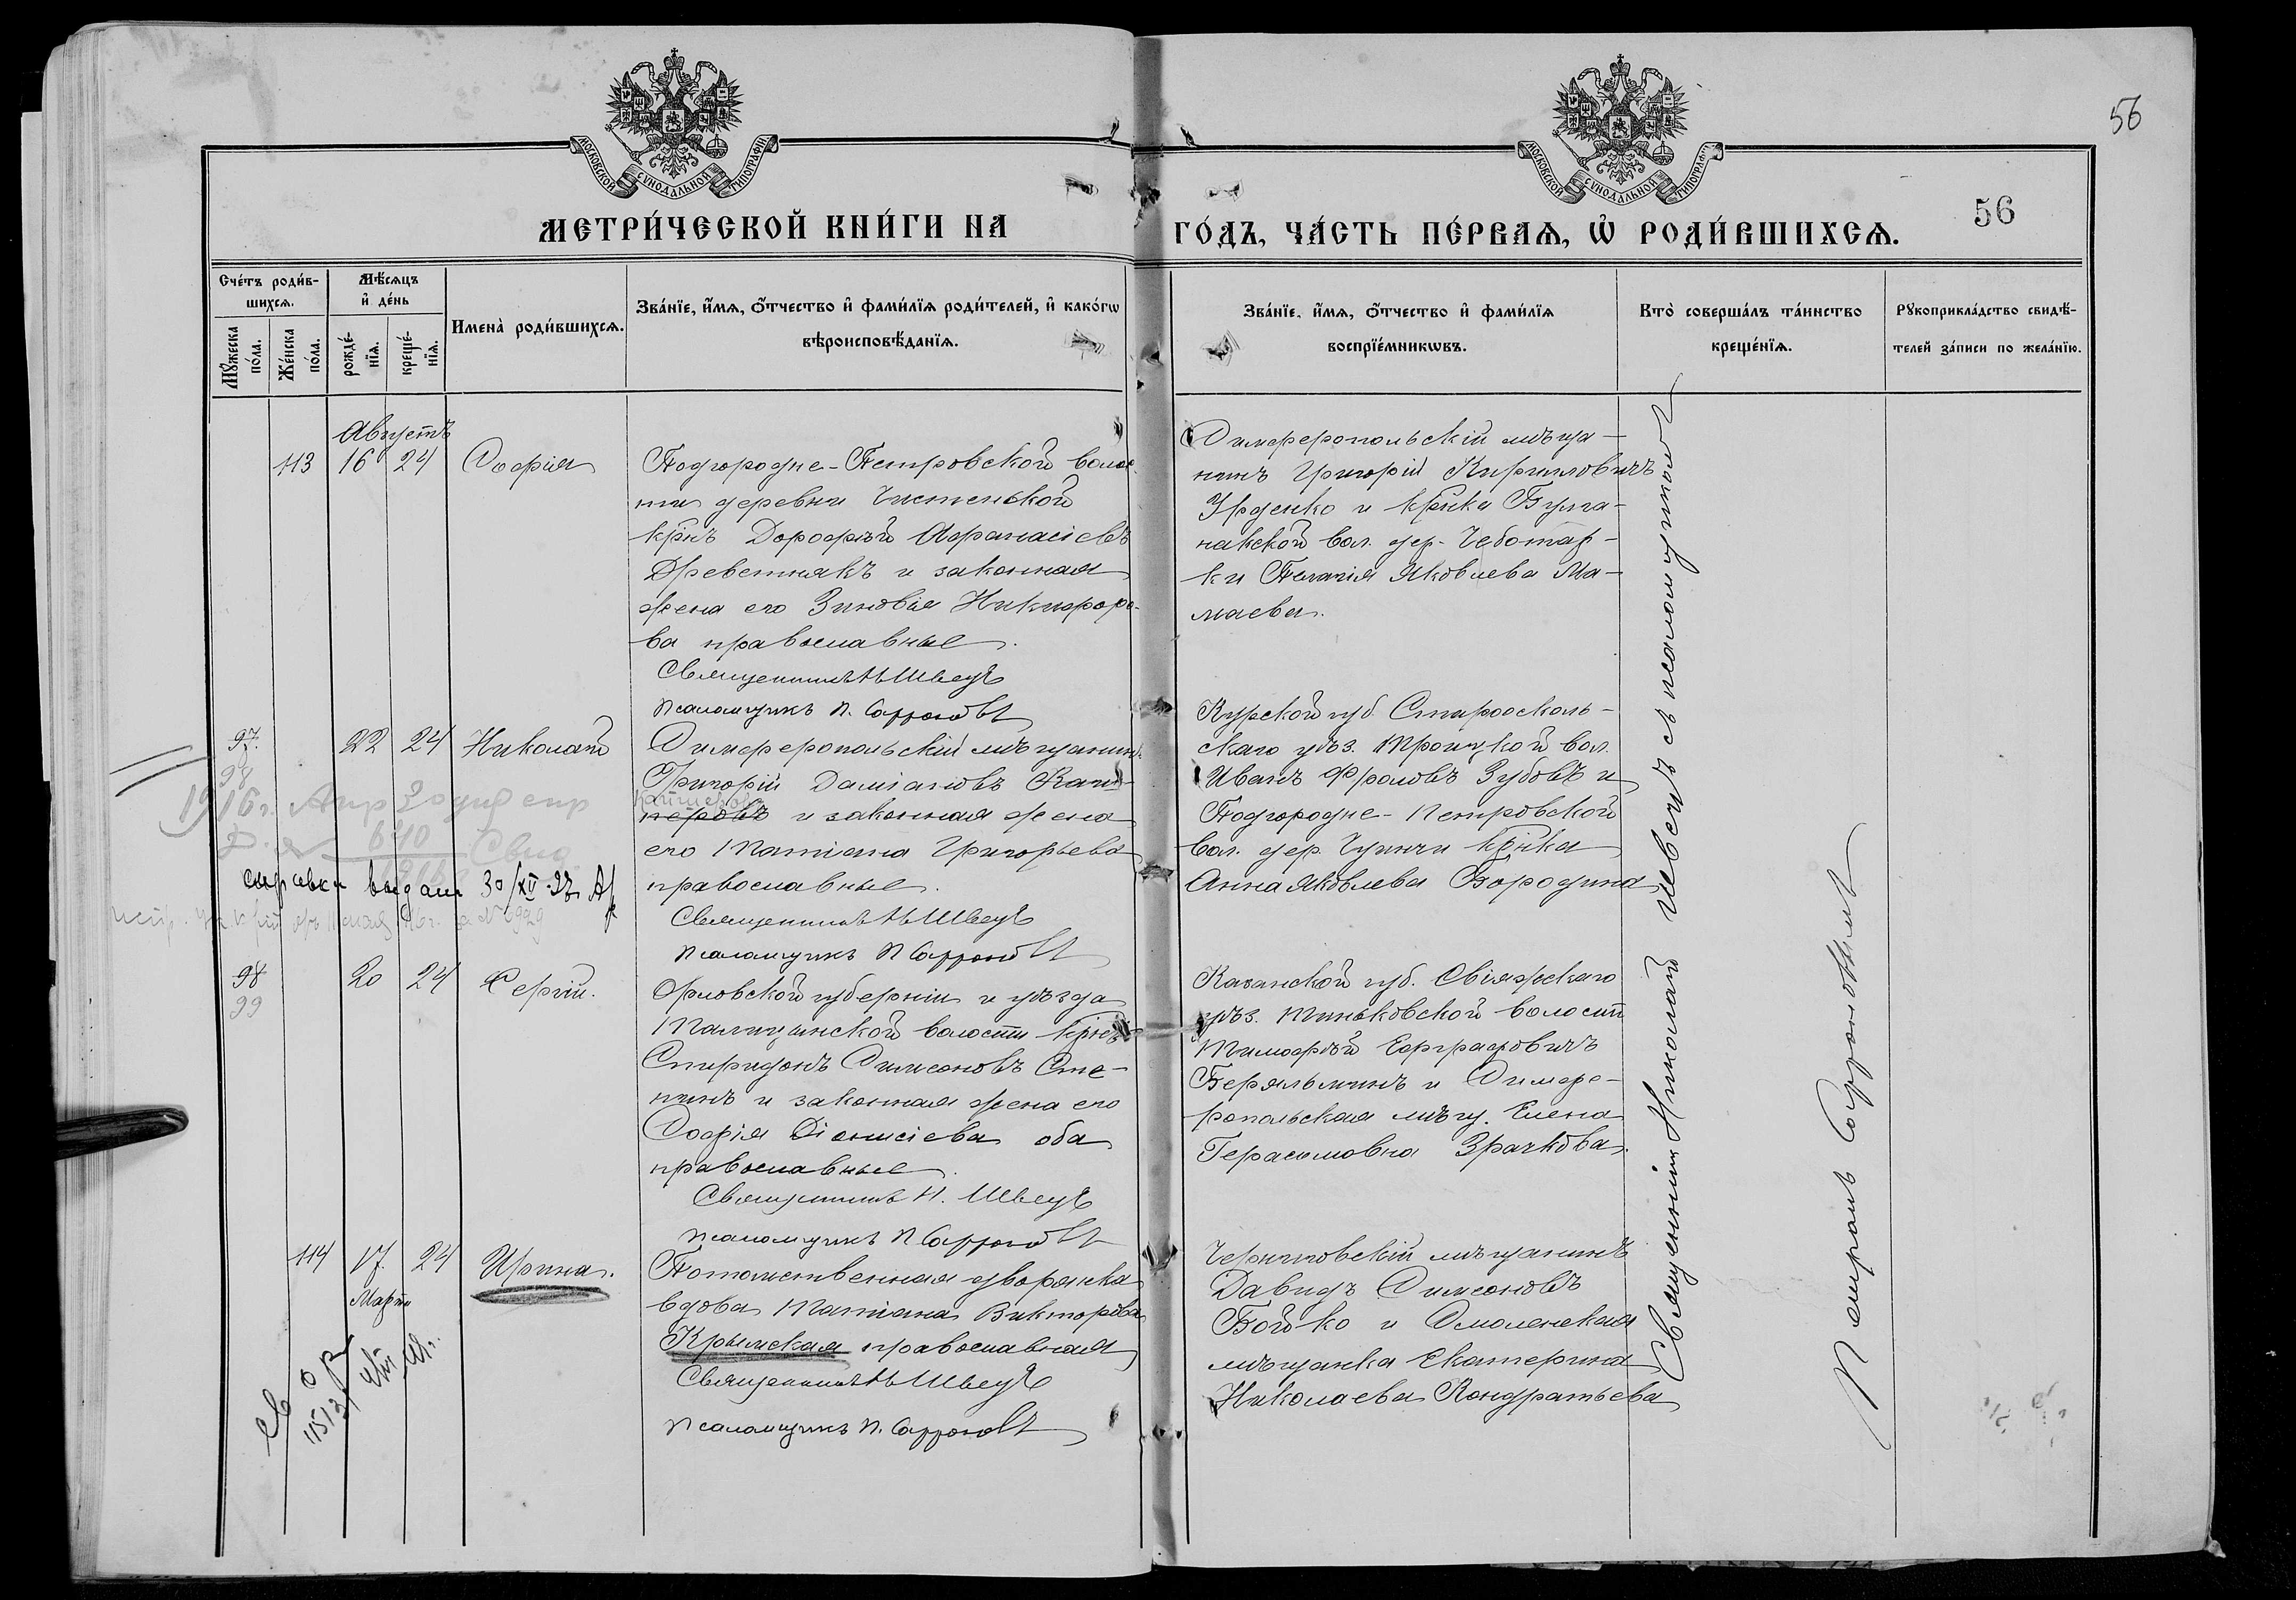 56
МОСКОВСКОЙ СѴНОДАЛЬНОЙ ТИПОГРАФІИ.
МОСКОВСКОЙ СѴНОДАЛЬНОЙ ТИПОГРАФІИ.
56
МЕТРИ́ЧЕСКОЙ КНИ́ГИ НА
ГО́ДЪ, ЧА́СТЬ ПЕ́РВАѦ, Ѽ РОДИ́ВШИХСѦ.
Сче́тъ роди́в-
шихсѧ.
Мꙋ́жеска
по́ла.
Же́нска
по́ла.
Мѣ́сѧцъ
и҆ де́нь
рожде́-
нїѧ.
креще́-
нїѧ.
Имена̀ роди́вшихсѧ.
Зва́нїе, и҆́мѧ, ѻ҆́тчество и҆ фами́лїѧ роди́телей, и҆ како́гѡ
вѣроисповѣ́данїѧ.
Зва́нїе, и҆́мѧ, ѻ҆́тчество и҆ фами́лїѧ
воспрїе́мникѡвъ.
Кто̀ соверша́лъ та́инство
креще́нїѧ.
Рꙋкоприкла́дство свидѣ́-
телей за́писи по жела́нїю.
Августъ
113 16 24 Софія
Подгородне-Петровской волос-
ти деревни Чистенькой
кр̃нъ Дорофѣй Афанасіевъ
Древетнякъ и законная
жена его Зиновія Никифоро-
ва православные.
Священникъ Н Швецъ
Псаломщикъ П. Сафоновъ
Симферопольскій мѣща-
нинъ Григорій Кирилловичъ
Урденко и кр̃нка Булга-
накской вол. дер. Чеботар-
ки Пелагія Яковлева Ма-
маева.
97. 22 24 Николай
98
Симферопольскій мѣщанинъ
Григорій Даміановъ Кани-
перовъ и законная жена
его Татіана Григорьева
православные.
Священникъ Н Швецъ
Псаломщикъ П Сафоновъ
1916 г.
640
справка выдана 30/XII
Курской губ. Староосколь-
скаго уѣз. Троицкой вол.
Иванъ Фроловъ Зубовъ и
Подгородне-Петровской
вол. дер. кр̃нка
Анна Яковлева Бородина
98 20 24 Сергій.
99
Орловской губерніи и уѣзда
волости кр̃нъ
Спиридонъ Симеоновъ Сте-
нинъ и законная жена его
Софія Діонисіева оба
православные.
Священникъ Н. Швецъ
Псаломщикъ П Сафоновъ
Казанской губ. Свіяжскаго
уѣз. Теньковской волости
Тимофѣй Евграфовичъ
и Симфе-
ропольская мѣщ. Елена
Герасимовна Зрачкова.
114 17. 24 Ирина.
Марта
Потомственная дворянка
вдова Татіана Викторова
Крымская православная
Священникъ Н Швецъ
Псаломщикъ П. Сафоновъ
Черниговскій мѣщанинъ
Давидъ Симеоновъ
Бойко и Смоленская
мѣщанка Екатерина
Николаева Кондратьева
Священникъ Николай Швецъ съ псаломщикомъ
Петромъ Сафоновымъ